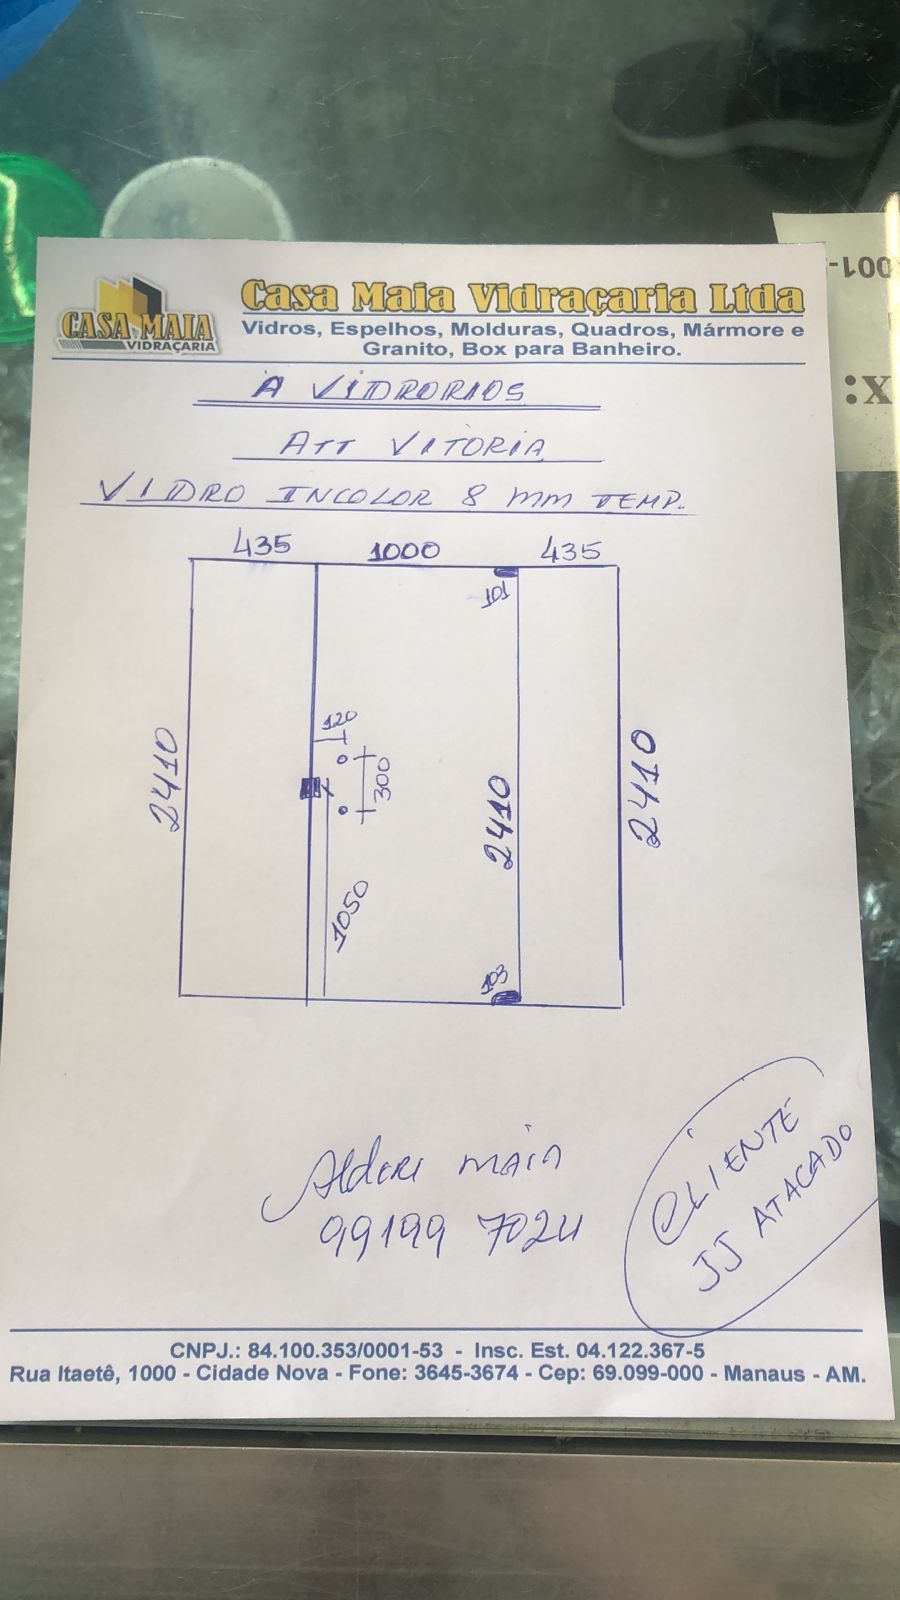 001-
X:
CASA MAIA
VIDRAÇARIA
Casa Maia Vidraçaria Ltda
Vidros, Espelhos, Molduras, Quadros, Mármore e
Granito, Box para Banheiro.
A VIDRORIOS
ATT VITORIA
VIDRO INCOLOR 8 MM TEMP.
435 1000 435
101
120
300
2410
2410
2410
1050
103
Alderi maia
99199 7024
CLIENTE
JJ ATACADO
CNPJ.: 84.100.353/0001-53 - Insc. Est. 04.122.367-5
Rua Itaetê, 1000 - Cidade Nova - Fone: 3645-3674 - Cep: 69.099-000 - Manaus - AM.